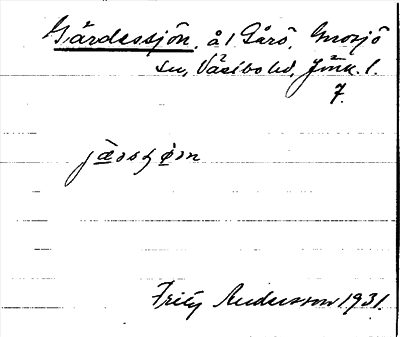 Gärdessjön, å 1 Gårö, Gnosjö
sn, Västbo hd, Jönk. l.
7.
Fritz Andersson 1931.